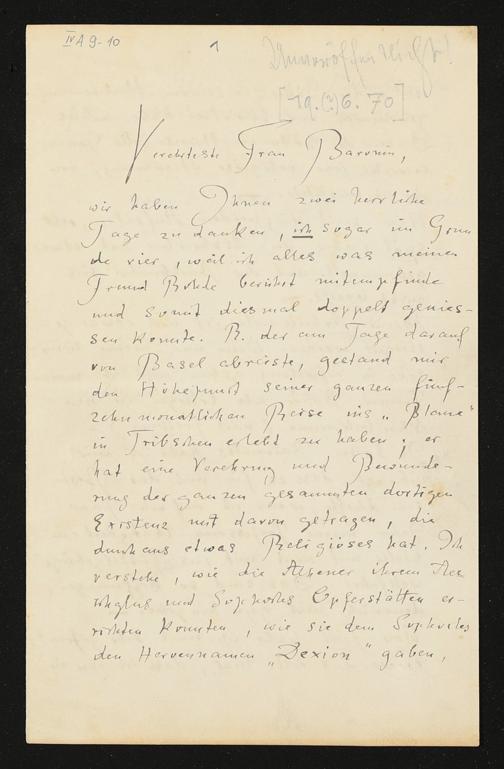 IV A 9-10
1
Unveröffentlicht!
[19.(?)6.70]
Verehrteste Frau Baronin,
wir haben Ihnen zwei herrliche
Tage zu danken, ich sogar im Grun
de vier, weil ich alles was meinen
Freund Rohde berührt mitempfinde
und somit diesmal doppelt genies-
sen konnte. R. der am Tage darauf
von Basel abreiste, gestand mir
den Höhepunkt seiner ganzen fünf-
zehnmonatlichen Reise ins „Blaue"
in Tribschen erlebt zu haben; er
hat eine Verehrung und Bewunde-
rung der ganzen gesammten dortigen
Existenz mit davon getragen, die
durchaus etwas Religiöses hat. Ich
verstehe, wie die Athener ihrem Aes
chylus und Sophocles Opferstätten er-
richten konnten, wie sie dem Sophocles
den Heroennamen „Dexion" gaben,